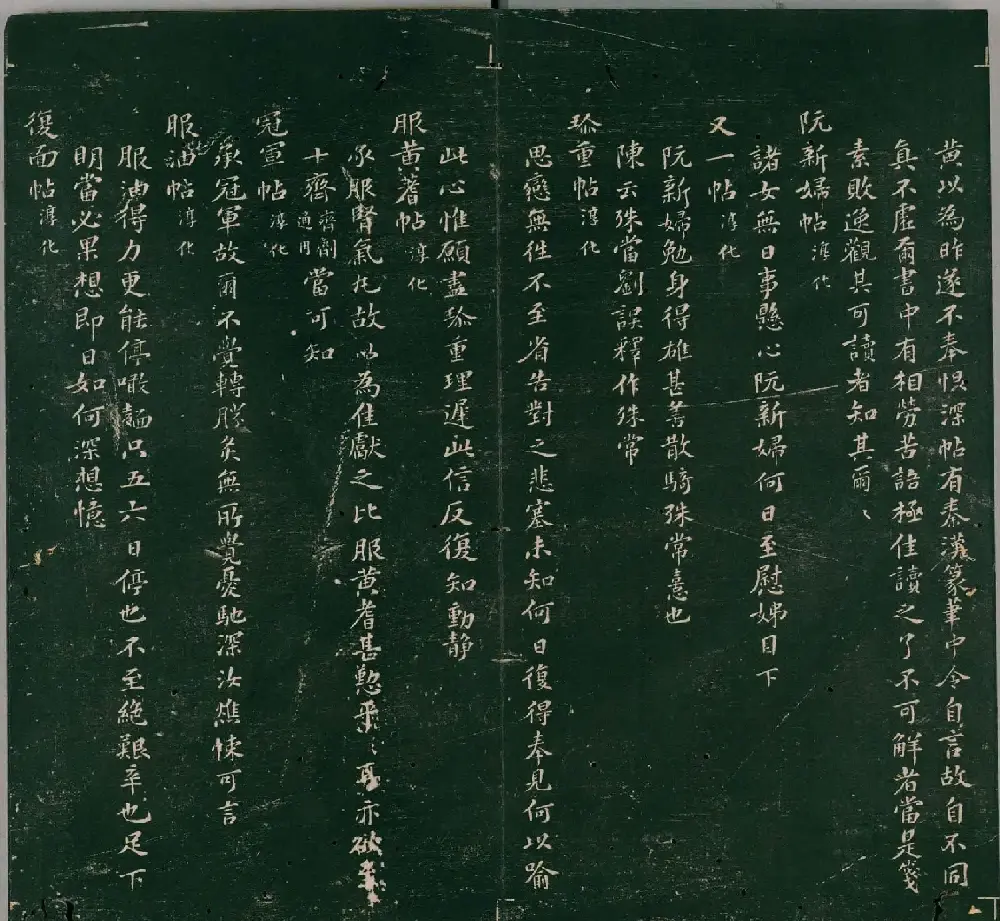 黄以為昨遂不奉恨深帖有秦漢篆筆中令自言故自不同
真不虛爾書中有相勞苦語極佳讀之了不可解者當是箋
素敗逸觀其可讀者知其爾ヽ
阮新婦帖淳化
諸女無日事懸心阮新婦何日至慰姊目下
又一帖淳化
阮新婦勉身得雄甚善散騎殊常憙也
陳云殊當劉誤釋作殊常
珎重帖淳化
思戀無徃不至省告對之悲塞未知何日復得奉見何以喻
此心惟願盡珎重理遲此信反復知動静
服黄蓍帖淳化
承服腎氣丸故以為佳獻之比服黄耆甚懃
十齊齊劑通用當可知
冠軍帖淳化
承冠軍故爾不覺轉勝灸無所覺憂馳深汝燋悚可言
服油帖淳化
服油得力更能停噉麺只五六日停也不至絶艱辛也足下
明當必果想即日如何深想憶
復面帖淳化